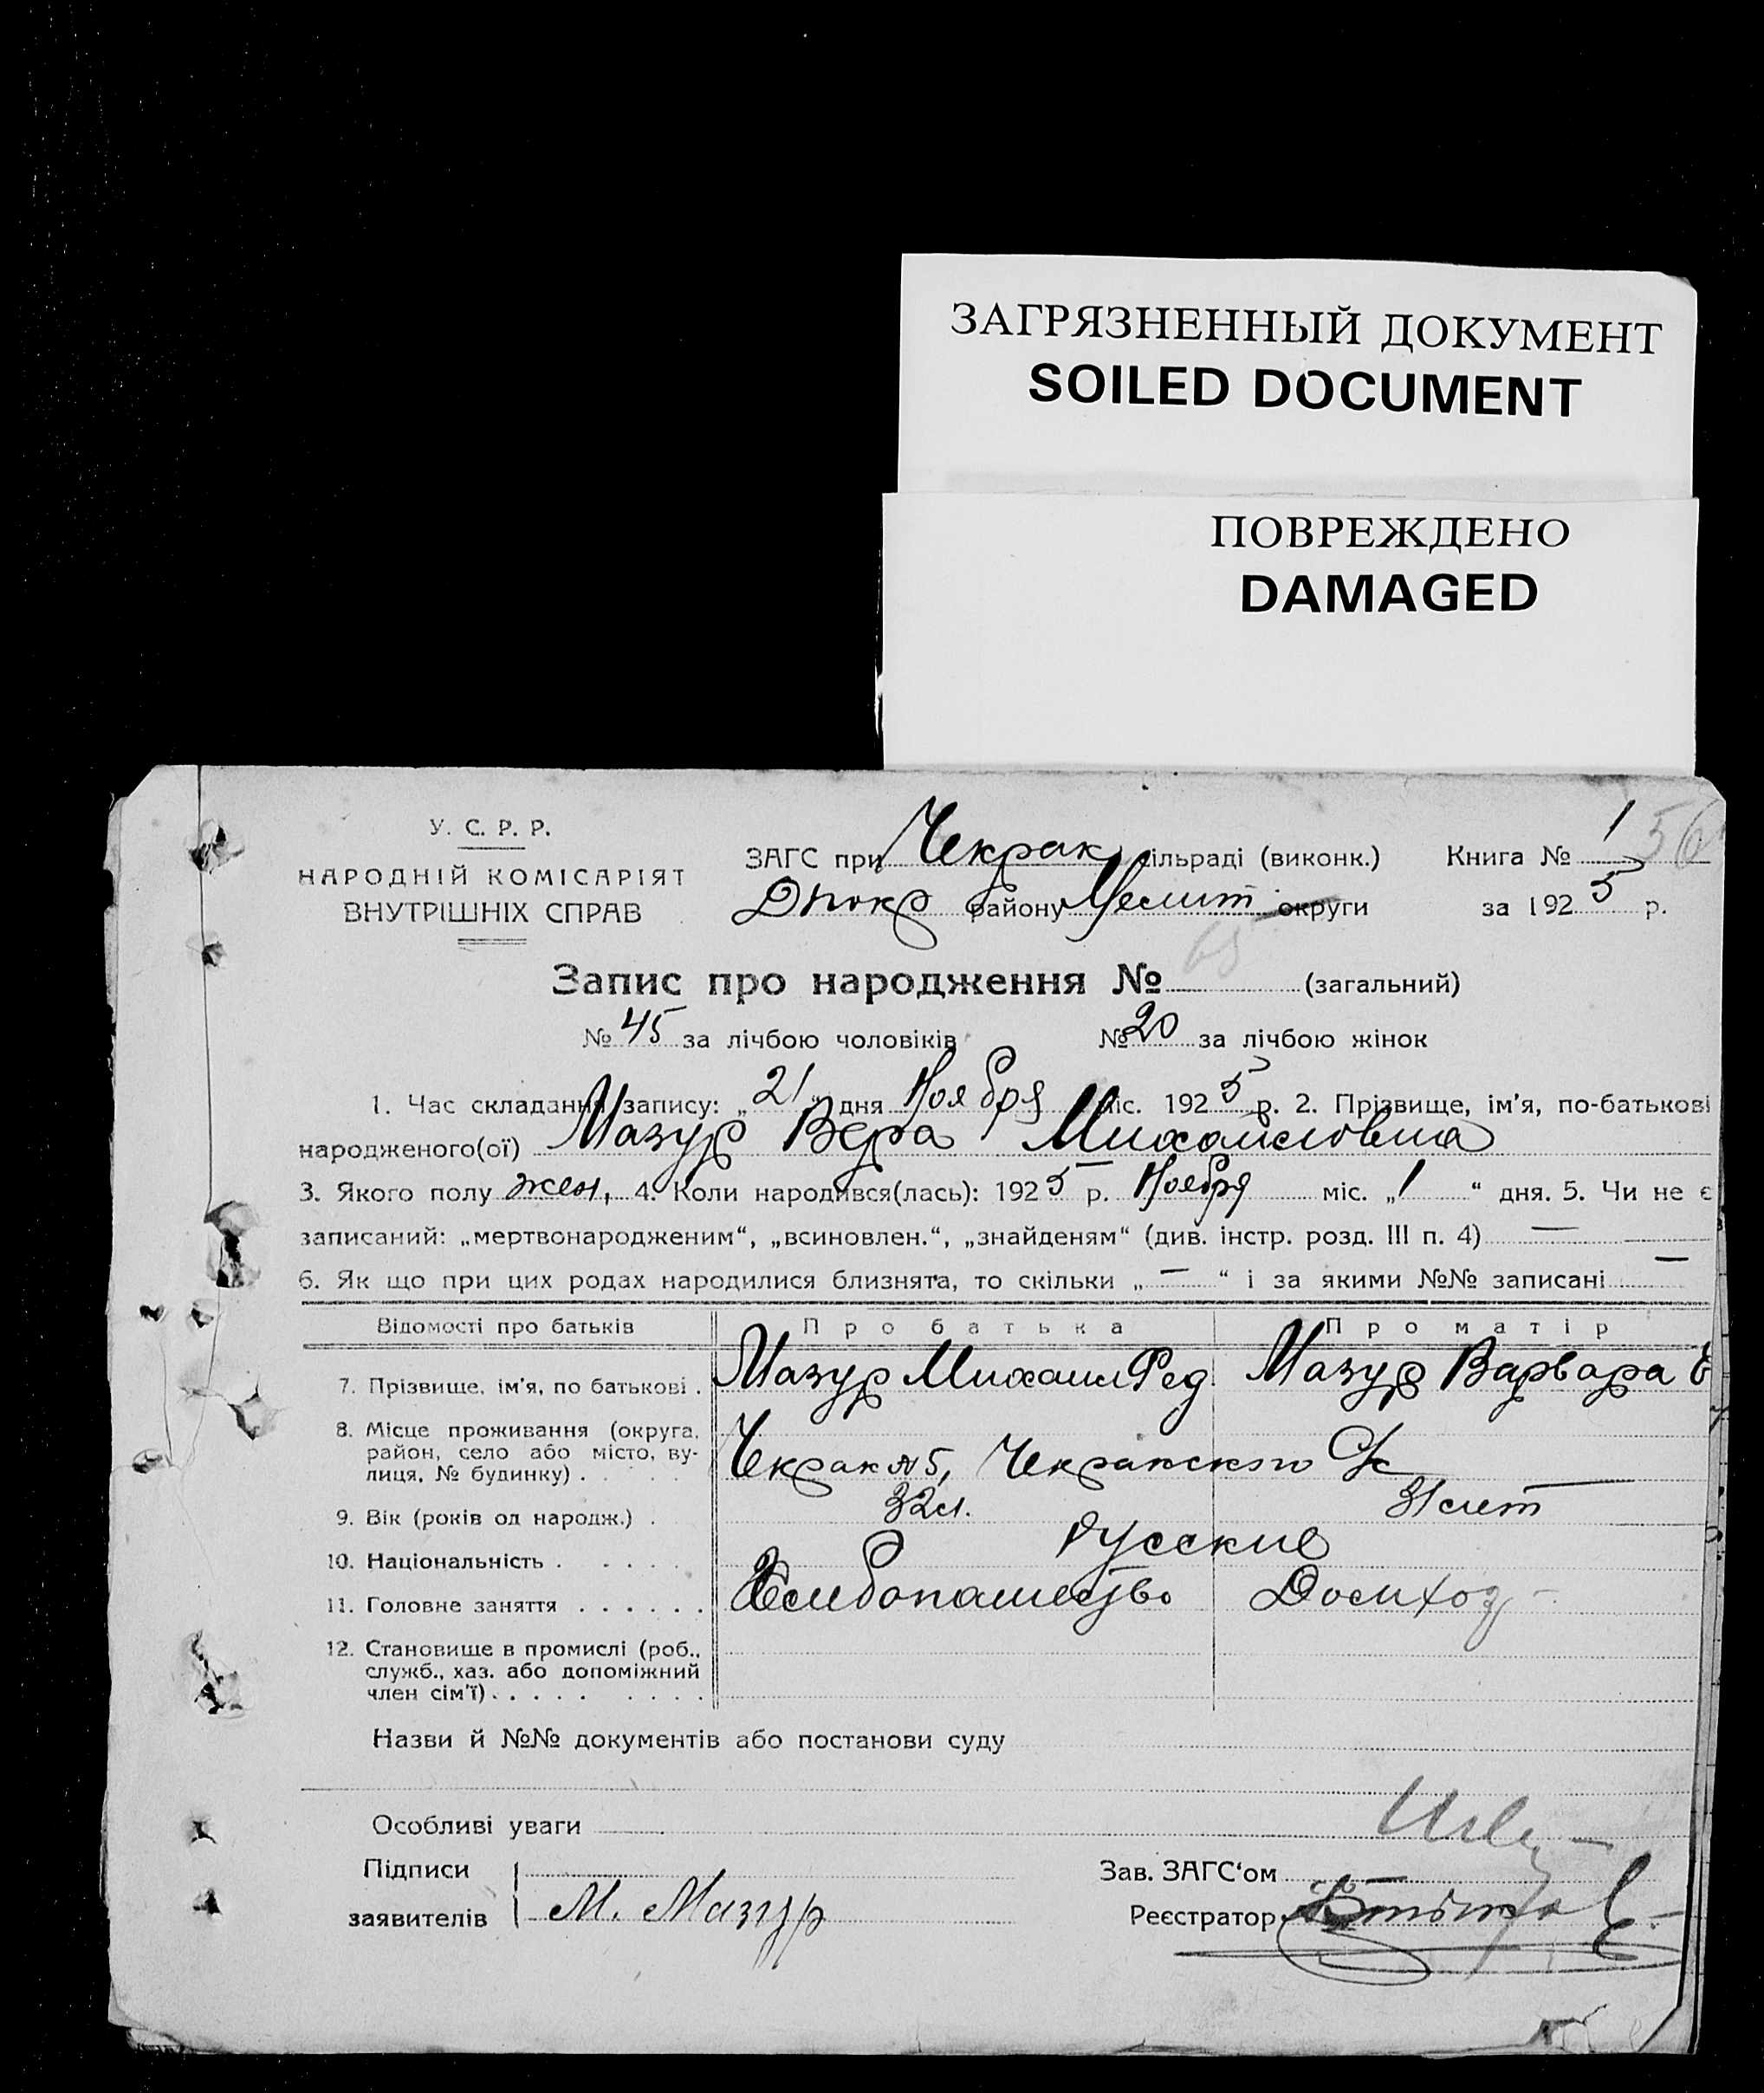 ЗАГРЯЗНЕННЫЙ ДОКУМЕНТ
SOILED DOCUMENT
ПОВРЕЖДЕНО
DAMAGED
У. С. Р. Р.
НАРОДНІЙ КОМІСАРІЯТ
ВНУТРІШНІХ СПРАВ
ЗАГС при Чекрак сільраді (виконк.) Книга № 1 56
району округи за 1925 р.
Запис про народження № 65 (загальний)
№ 45 за лічбою чоловіків № 20 за лічбою жінок
1. Час складання запису: „21“ дня Ноября міс. 1925 р. 2. Прізвище, ім'я, по-батькові
народженого(ої) Мазур Вера Михайловна
3. Якого полу жен, 4. Коли народився(лась): 1925 р. Ноября міс. „1“ дня. 5. Чи не є
записаний: „мертвонародженим“, „всиновлен.“, „знайденям“ (див. інстр. розд. III п. 4) —
6. Як що при цих родах народилися близнята, то скільки „—“ і за якими №№ записані —
Відомості про батьків Про батька Про матір
7. Прізвище, ім'я, по батькові . Мазур Михаил Фед. Мазур Варвара
8. Місце проживання (округа,
район, село або місто, ву-
лиця, № будинку) . Чекрак №5, Чекракского
9. Вік (років од народж.) . 32 л. 31 лет
10. Національність . . . . . Русские
11. Головне заняття . . . . . . Хлебопашество
12. Становище в промислі (роб.,
служб., хаз. або допоміжний
член сім'ї) . . . . .
Назви й №№ документів або постанови суду
Особливі уваги
Підписи Зав. ЗАГС'ом
заявителів М. Мазур Реєстратор